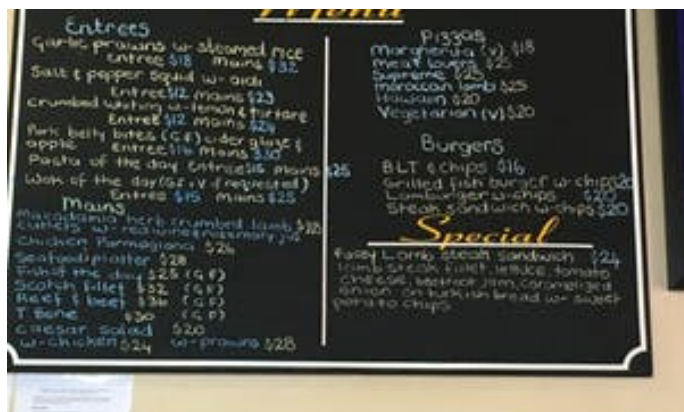 Menu
Entrees
Garlic prawns w- steamed rice
Entree $18 mains $32
Salt & pepper squid w- aioli
Entree $12 mains $23
crumbed whiting w- lemon & tartare
Entree $12 mains $24
Pork belly bites (GF) w cider glaze &
apple Entree $16 mains $30
Pasta of the day Entree $15 mains $25
Wok of the day (GF, V if requested)
Entree $15 mains $25
Mains
Macadamia herb crumbed lamb
cutlets w- redwine rosemary jus
chicken Parmagiana $26
Seafood platter $28
Fish of the day $25 (GF)
Scotch fillet $32 (GF)
Reef & beef $36 (GF)
T Bone $30 (GF)
caesar salad $20
w- chicken $24 w- prawns $28
Pizzas
Margherita (v) $18
meat lovers $25
Supreme $25
moroccan lamb $25
Hawaiin $20
Vegetarian (v) $20
Burgers
BLT & chips $16
Grilled fish burger w- chips $20
Lamburger w- chips $20
Steak sandwich w- chips $20
Special
Lamb steak sandwich $24
lamb steak fillet, lettuce, tomato
cheese, beetroot jam, caramelized
onion on turkish bread w- sweet
potato chips